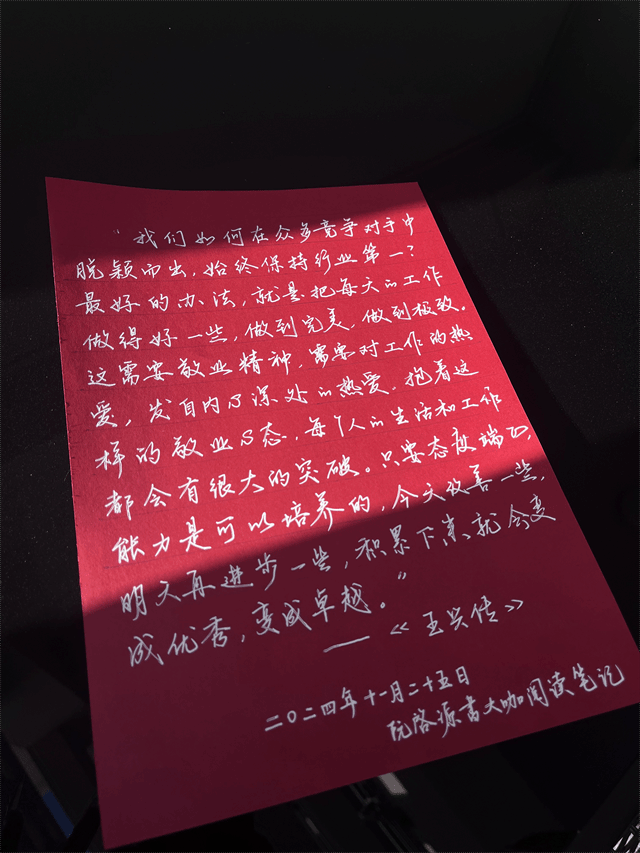 “我们如何在众多竞争对手中
脱颖而出，始终保持行业第一？
最好的办法，就是把每天的工作
做得好一些，做到完美，做到极致。
这需要敬业精神，需要对工作的热
爱，发自内心深处的热爱，抱着这
样的敬业心态，每个人的生活和工作
都会有很大的突破。只要态度端正，
能力是可以培养的，今天改善一些，
明天再进步一些，积累下来，就会变
成优秀，变成卓越。”
——《王兴传》
二〇二四年十一月二十五日
阮啓源书大咖阅读笔记